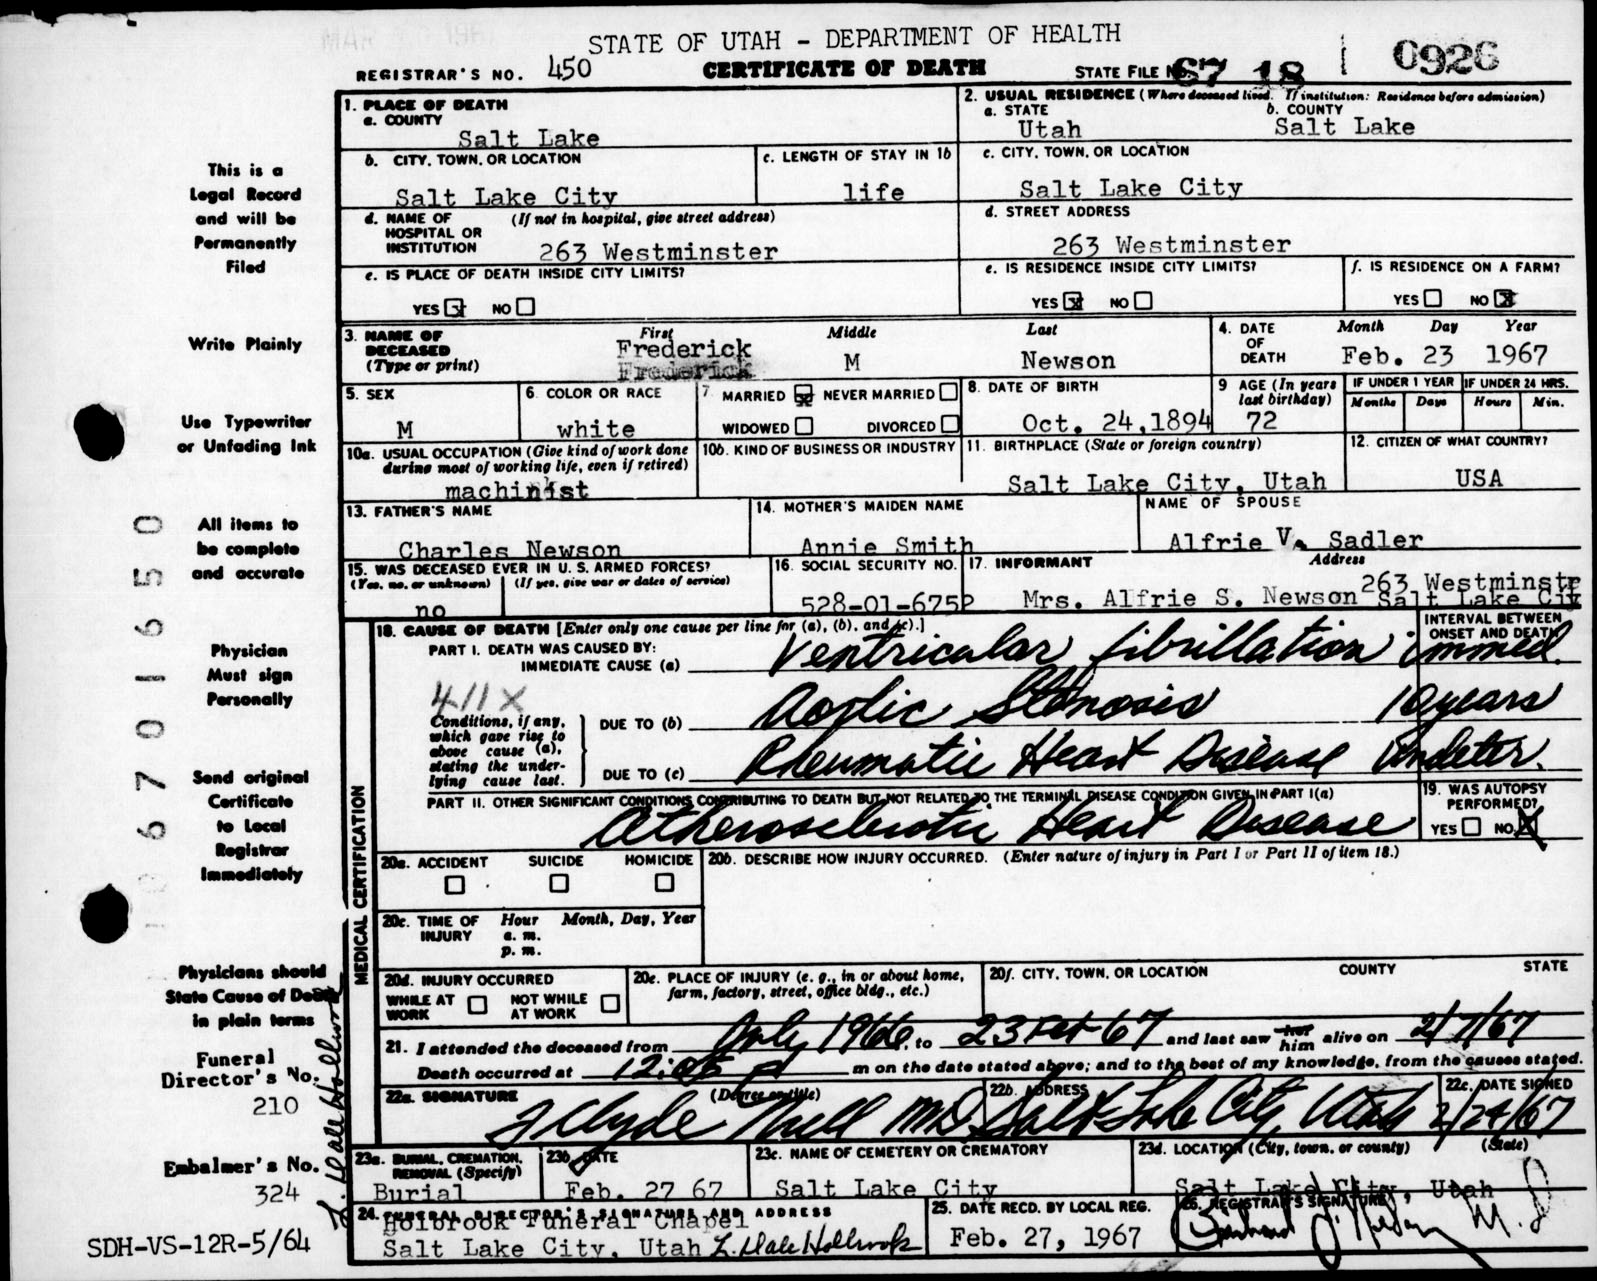 STATE OF UTAH - DEPARTMENT OF HEALTH
REGISTRAR'S NO. 450 CERTIFICATE OF DEATH STATE FILE NO. 67 18 0926
1. PLACE OF DEATH
a. COUNTY
Salt Lake
2. USUAL RESIDENCE (Where deceased lived. If institution: Residence before admission)
a. STATE b. COUNTY
Utah Salt Lake
b. CITY, TOWN, OR LOCATION
Salt Lake City
c. LENGTH OF STAY IN 1b
life
c. CITY, TOWN, OR LOCATION
Salt Lake City
d. NAME OF HOSPITAL OR INSTITUTION (If not in hospital, give street address)
263 Westminster
d. STREET ADDRESS
263 Westminster
e. IS PLACE OF DEATH INSIDE CITY LIMITS?
YES ☒ NO ☐
e. IS RESIDENCE INSIDE CITY LIMITS?
YES ☒ NO ☐
f. IS RESIDENCE ON A FARM?
YES ☐ NO ☒
3. NAME OF DECEASED (Type or print)
First Middle Last
Frederick M Newson
Frederick
4. DATE OF DEATH
Month Day Year
Feb. 23 1967
5. SEX
M
6. COLOR OR RACE
white
7. MARRIED ☒ NEVER MARRIED ☐
WIDOWED ☐ DIVORCED ☐
8. DATE OF BIRTH
Oct. 24,1894
9 AGE (In years last birthday)
72
IF UNDER 1 YEAR
Months Days
IF UNDER 24 HRS.
Hours Min.
10a. USUAL OCCUPATION (Give kind of work done during most of working life, even if retired)
machinist
10b. KIND OF BUSINESS OR INDUSTRY
11. BIRTHPLACE (State or foreign country)
Salt Lake City, Utah
12. CITIZEN OF WHAT COUNTRY?
USA
13. FATHER'S NAME
Charles Newson
14. MOTHER'S MAIDEN NAME
Annie Smith
NAME OF SPOUSE
Alfrie V. Sadler
15. WAS DECEASED EVER IN U. S. ARMED FORCES?
(Yes, no, or unknown) (If yes, give war or dates of service)
no
16. SOCIAL SECURITY NO.
528-01-6752
17. INFORMANT Address
Mrs. Alfrie S. Newson 263 Westminstr
Salt Lake Cit
18. CAUSE OF DEATH [Enter only one cause per line for (a), (b), and (c).]
INTERVAL BETWEEN ONSET AND DEATH
PART I. DEATH WAS CAUSED BY:
IMMEDIATE CAUSE (a) Ventricular fibrillation immed.
411X
Conditions, if any, which gave rise to above cause (a), stating the underlying cause last.
DUE TO (b) Aortic Stenosis 10 years
DUE TO (c) Rheumatic Heart Disease undeter.
PART II. OTHER SIGNIFICANT CONDITIONS CONTRIBUTING TO DEATH BUT NOT RELATED TO THE TERMINAL DISEASE CONDITION GIVEN IN PART I(a)
Atherosclerotic Heart Disease
19. WAS AUTOPSY PERFORMED?
YES ☐ NO ☒
MEDICAL CERTIFICATION
20a. ACCIDENT SUICIDE HOMICIDE
☐ ☐ ☐
20b. DESCRIBE HOW INJURY OCCURRED. (Enter nature of injury in Part I or Part II of item 18.)
20c. TIME OF INJURY
Hour Month, Day, Year
a. m.
p. m.
20d. INJURY OCCURRED
WHILE AT WORK ☐ NOT WHILE AT WORK ☐
20e. PLACE OF INJURY (e. g., in or about home, farm, factory, street, office bldg., etc.)
20f. CITY, TOWN, OR LOCATION COUNTY STATE
21. I attended the deceased from July 1966, to 23 Feb 67 and last saw her him alive on 2/7/67
Death occurred at 12:05 p m on the date stated above; and to the best of my knowledge, from the causes stated.
22a. SIGNATURE (Degree or title)
Clyde Null MD
22b. ADDRESS
Salt Lake City, Utah
22c. DATE SIGNED
2/24/67
23a. BURIAL, CREMATION, REMOVAL (Specify)
Burial
23b. DATE
Feb. 27 67
23c. NAME OF CEMETERY OR CREMATORY
Salt Lake City
23d. LOCATION (City, town, or county) (State)
Salt Lake City, Utah
24. FUNERAL DIRECTOR'S SIGNATURE AND ADDRESS
Holbrook Funeral Chapel
Salt Lake City, Utah L. Dale Holbrook
25. DATE RECD. BY LOCAL REG.
Feb. 27, 1967
26. REGISTRAR'S SIGNATURE
M. D
This is a
Legal Record
and will be
Permanently
Filed
Write Plainly
Use Typewriter
or Unfading Ink
All items to
be complete
and accurate
Physician
Must sign
Personally
Send original
Certificate
to Local
Registrar
Immediately
Physicians should
State Cause of Death
in plain terms
Funeral
Director's No.
210
Embalmer's No.
324
L. Dale Holbrook
SDH-VS-12R-5/64